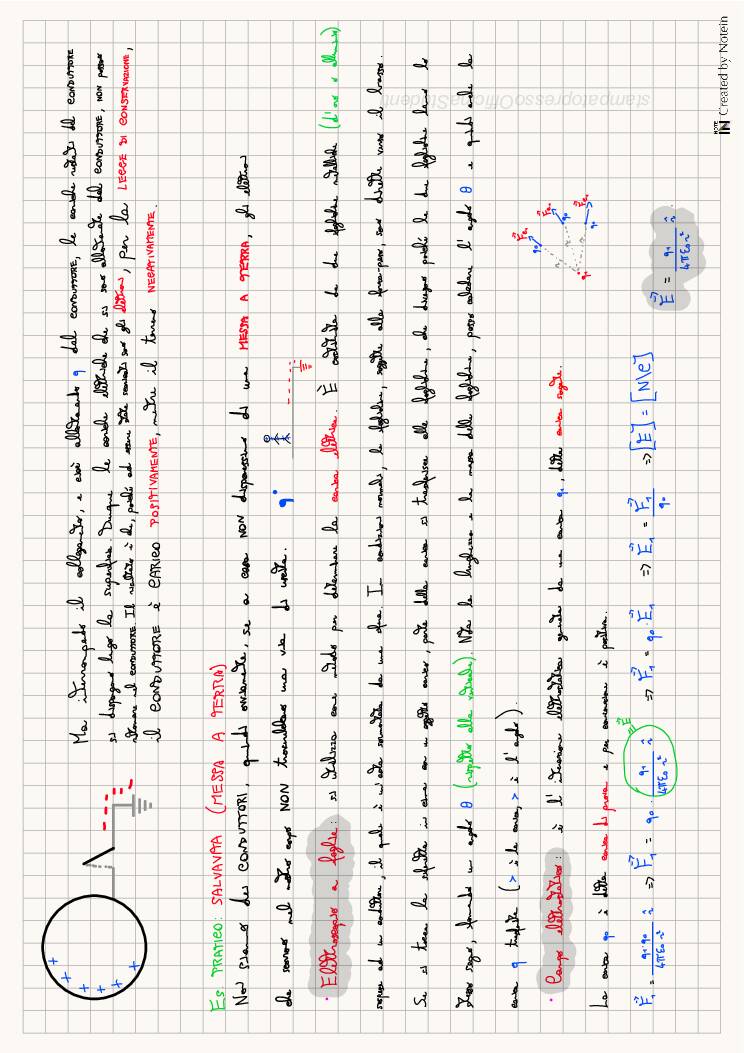 Ma interrompendo il collegamento, e cioè allontanando q dal CONDUTTORE, le cariche indotte del CONDUTTORE
si dispongono lungo la superficie. Dunque le cariche elettriche che si sono allontanate dal CONDUTTORE, non possono
ritornare al CONDUTTORE. Il risultato è che, poiché ad essere state scambiate sono gli elettroni, per la LEGGE DI CONSERVAZIONE,
il CONDUTTORE è CARICO POSITIVAMENTE, mentre il terreno NEGATIVAMENTE.
Es. PRATICO: SALVAVITA (MESSA A TERRA)
Noi siamo dei CONDUTTORI, quindi ovviamente, se a casa NON disponessimo di una MESSA A TERRA, gli elettroni
che scorrono nel nostro corpo NON troverebbero una via di uscita.
q
• Elettroscopio a foglie: si utilizza come metodo per determinare la carica elettrica. È costituito da due foglioline metalliche (d'oro o alluminio)
sospese ad un conduttore, il quale è in sfera sormontata da una sfera. In condizioni normali, le foglioline, soggette alla forza-peso, sono dirette verso il basso.
Se si tocca la sferetta in cima con un oggetto carico, parte della carica si trasferisce alle foglioline, che divergono poiché le due foglioline hanno lo
stesso segno, formando un angolo θ (rispetto alla verticale). Nota la lunghezza e la massa delle foglioline, posso calcolare l'angolo θ e quindi anche la
carica q trasferita (> è la carica, > è l'angolo).
• Campo elettrostatico: è l'interazione elettrostatica generata da una carica q₁, detta carica sorgente.
La carica q₀ è detta carica di prova e per convenzione è positiva.
F⃗₁ = q₁·q₀ / 4πε₀r² r̂ ⇒ F⃗₁ = q₀ · q₁ / 4πε₀r² r̂ ⇒ F⃗₁ = q₀·E⃗₁ ⇒ E⃗₁ = F⃗₁ / q₀ ⇒ [E⃗] = [N\C] E⃗ = q₁ / 4πε₀r² r̂
stampatopressoOfficinaStudenti
NOTE IN Created by Notein